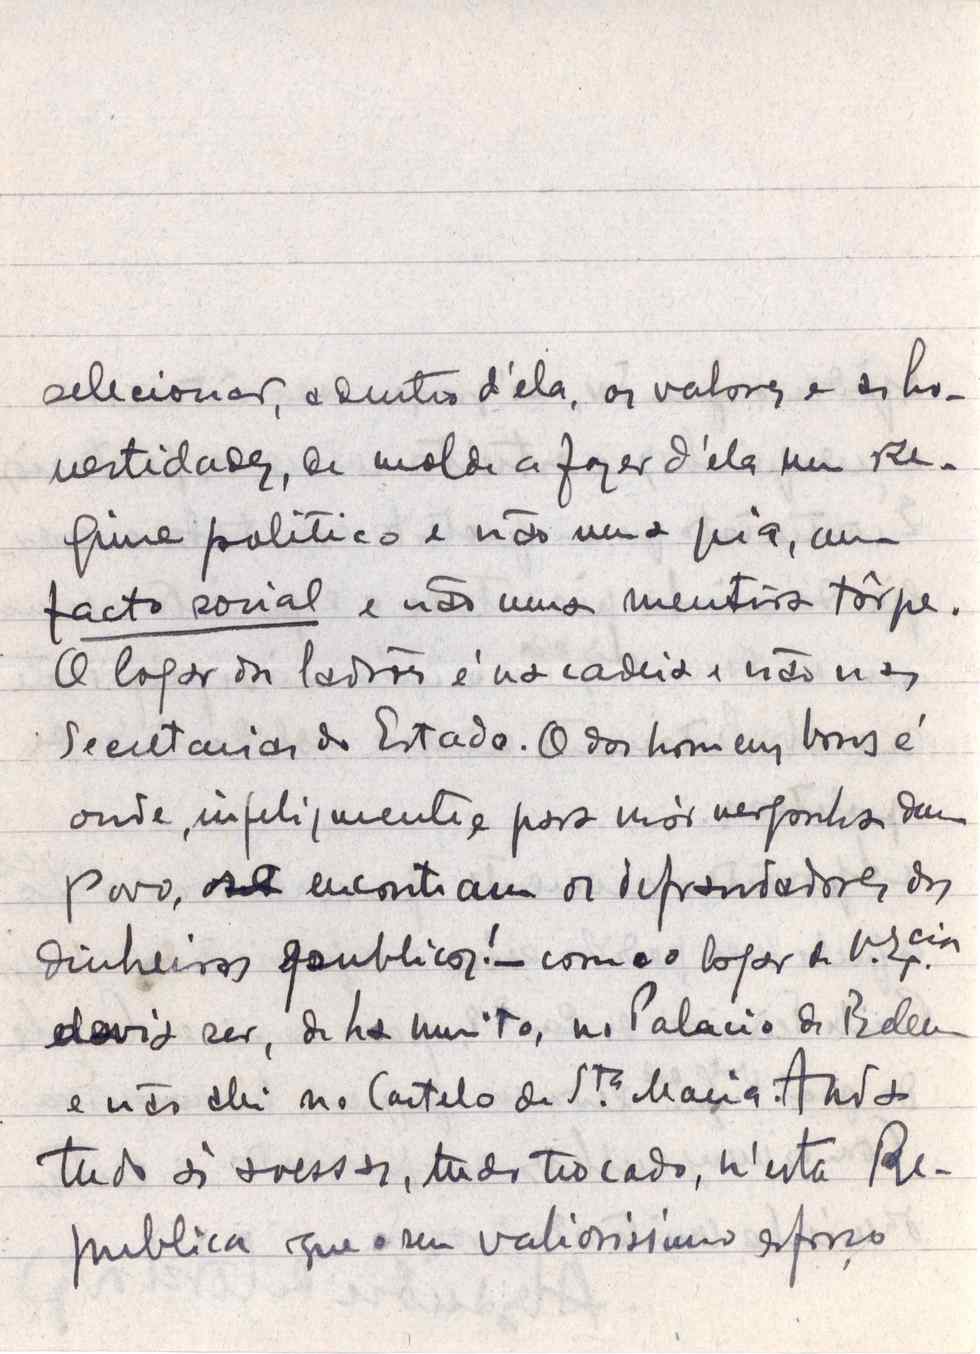 selecionar, a dentro d'éla, os valores e as ho-
nestidades, de molde a fazer d'éla um Re-
gime politico e não uma pia, um
facto social e não uma mentira tôrpe.
O logar dos ladrões é na cadeia e não nas
Secretarias do Estado. O dos homens bons é
onde, infelizmente e para mór vergonha dum
Povo, encontram os defraudadores dos
dinheiros publicos! — como o logar de V. Ex.cia
devia ser, de ha muito, no Palacio de Belem
e não ahi no Castelo de S.ta Maria. Anda
tudo ás avessas, tudo trocado, n'esta Re-
publica que o seu valiosissimo esforço